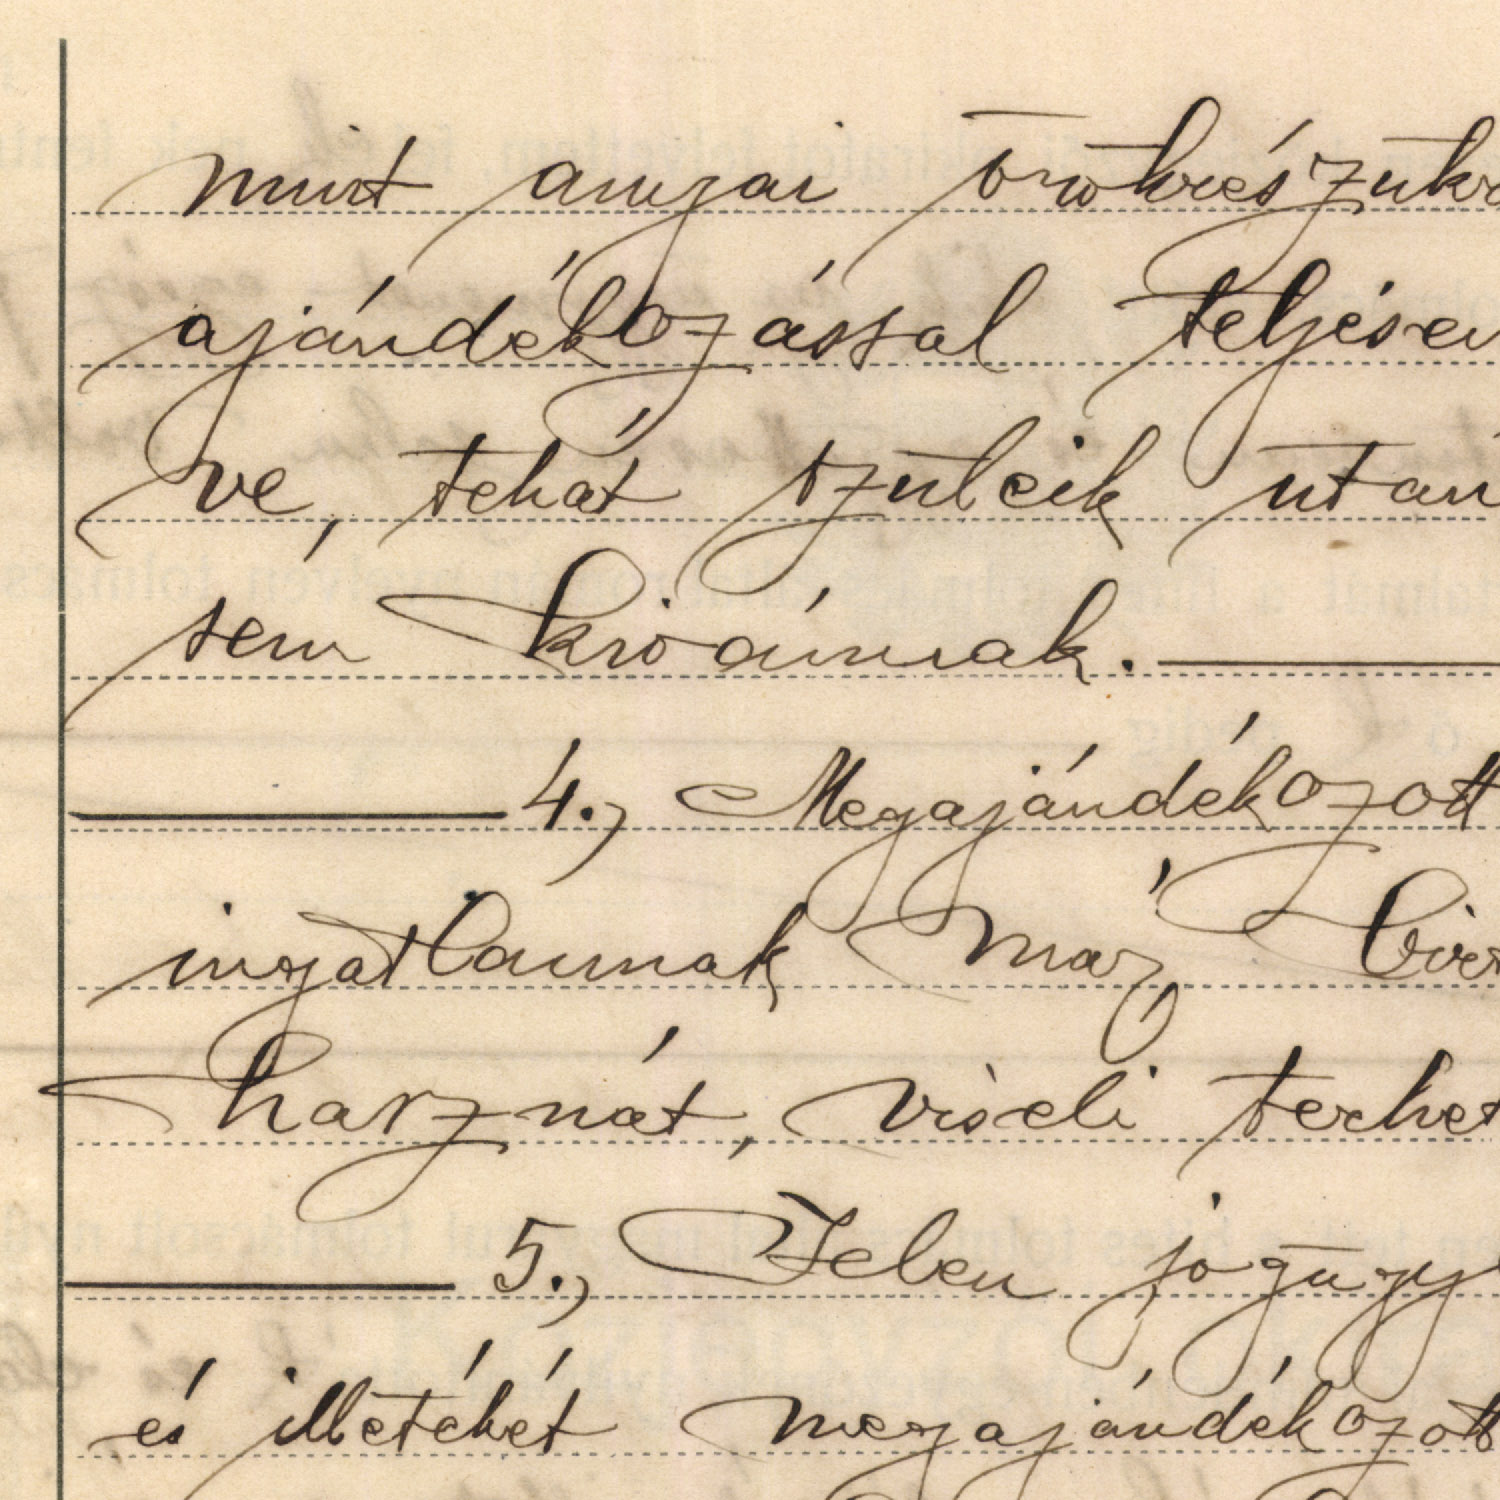 mint anyai örökrészükre
ajándékozással teljesen
ve, tehát szüleik után
sem kívánnak.
4., Megajándékozott
ingatlannak már
hasznát, viseli terhet
5., Jelen jogügy
és illetékét megajándékozott